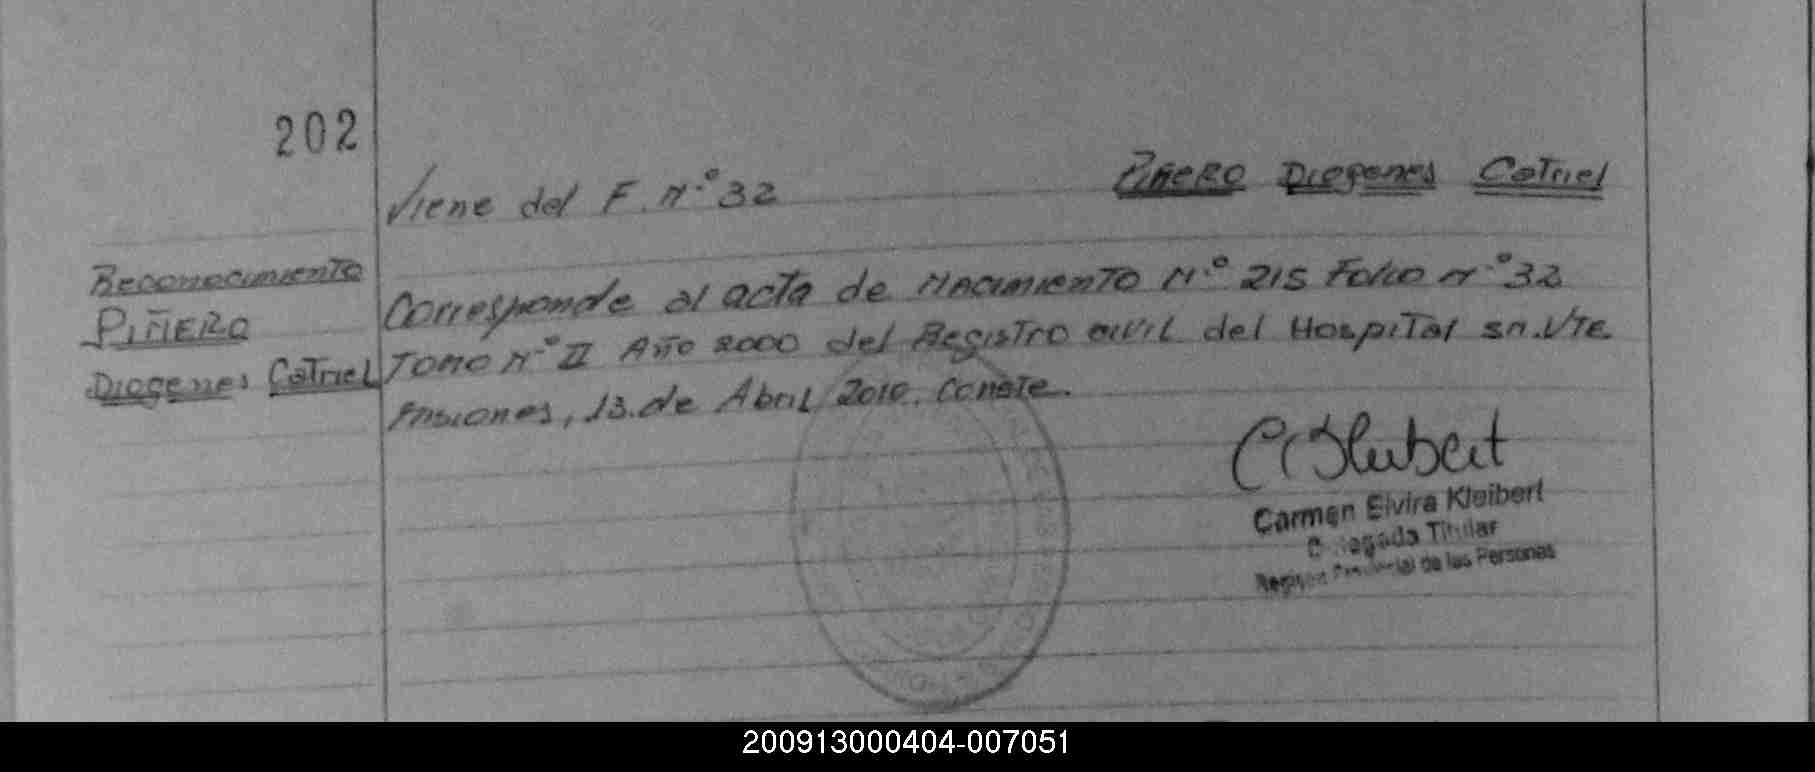 202
Viene del F. N.º 32
PIÑERO Diogenes Catriel
Reconocimiento
PIÑERO
Diogenes Catriel
Corresponde al acta de Nacimiento N.º 215 Folio N.º 32
Tomo N.º II Año 2000 del Registro civil del Hospital Sn. Vte.
Misiones, 13. de Abril 2010. Conste.
Carmen Elvira Kleibert
Delegada Titular
Registro Provincial de las Personas
200913000404-007051